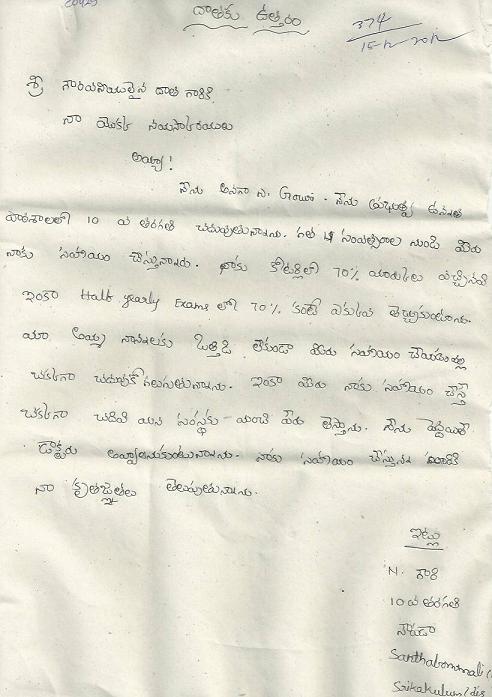 దాతకు ఉత్తరం
374
15-12-2012
శ్రీ గౌరవనీయులైన దాత గారికి
నా యొక్క నమస్కారములు
అయ్యా!
నేను అనగా N. Gowri. నేను ప్రభుత్వ ఉన్నత
పాఠశాలలో 10 వ తరగతి చదువుతున్నాను. గత 4 సంవత్సరాల నుండి మీరు
నాకు సహాయం చేస్తున్నారు. నాకు క్వార్టర్లీలో 70% మార్కులు వచ్చినవి
ఇంకా Half yearly Exams లో 70% కంటే ఎక్కువ తెచ్చుకుంటాను.
మా అమ్మ నాన్నలకు ఒత్తిడి లేకుండా మీరు సహాయం చేయడంవల్ల
చక్కగా చదువుకోగలుగుతున్నాను. ఇంకా మీరు నాకు సహాయం చేస్తే
చక్కగా చదివి మన సంస్థకు మంచి పేరు తెస్తాను. నేను పెద్దయితే
డాక్టరు అవ్వాలనుకుంటున్నాను. నాకు సహాయం చేస్తున్న దాతకి
నా కృతజ్ఞతలు తెలుపుతున్నాను.
ఇట్లు
N. గౌరి
10 వ తరగతి
నౌపడా
Santhabommali
Srikakulum (dis